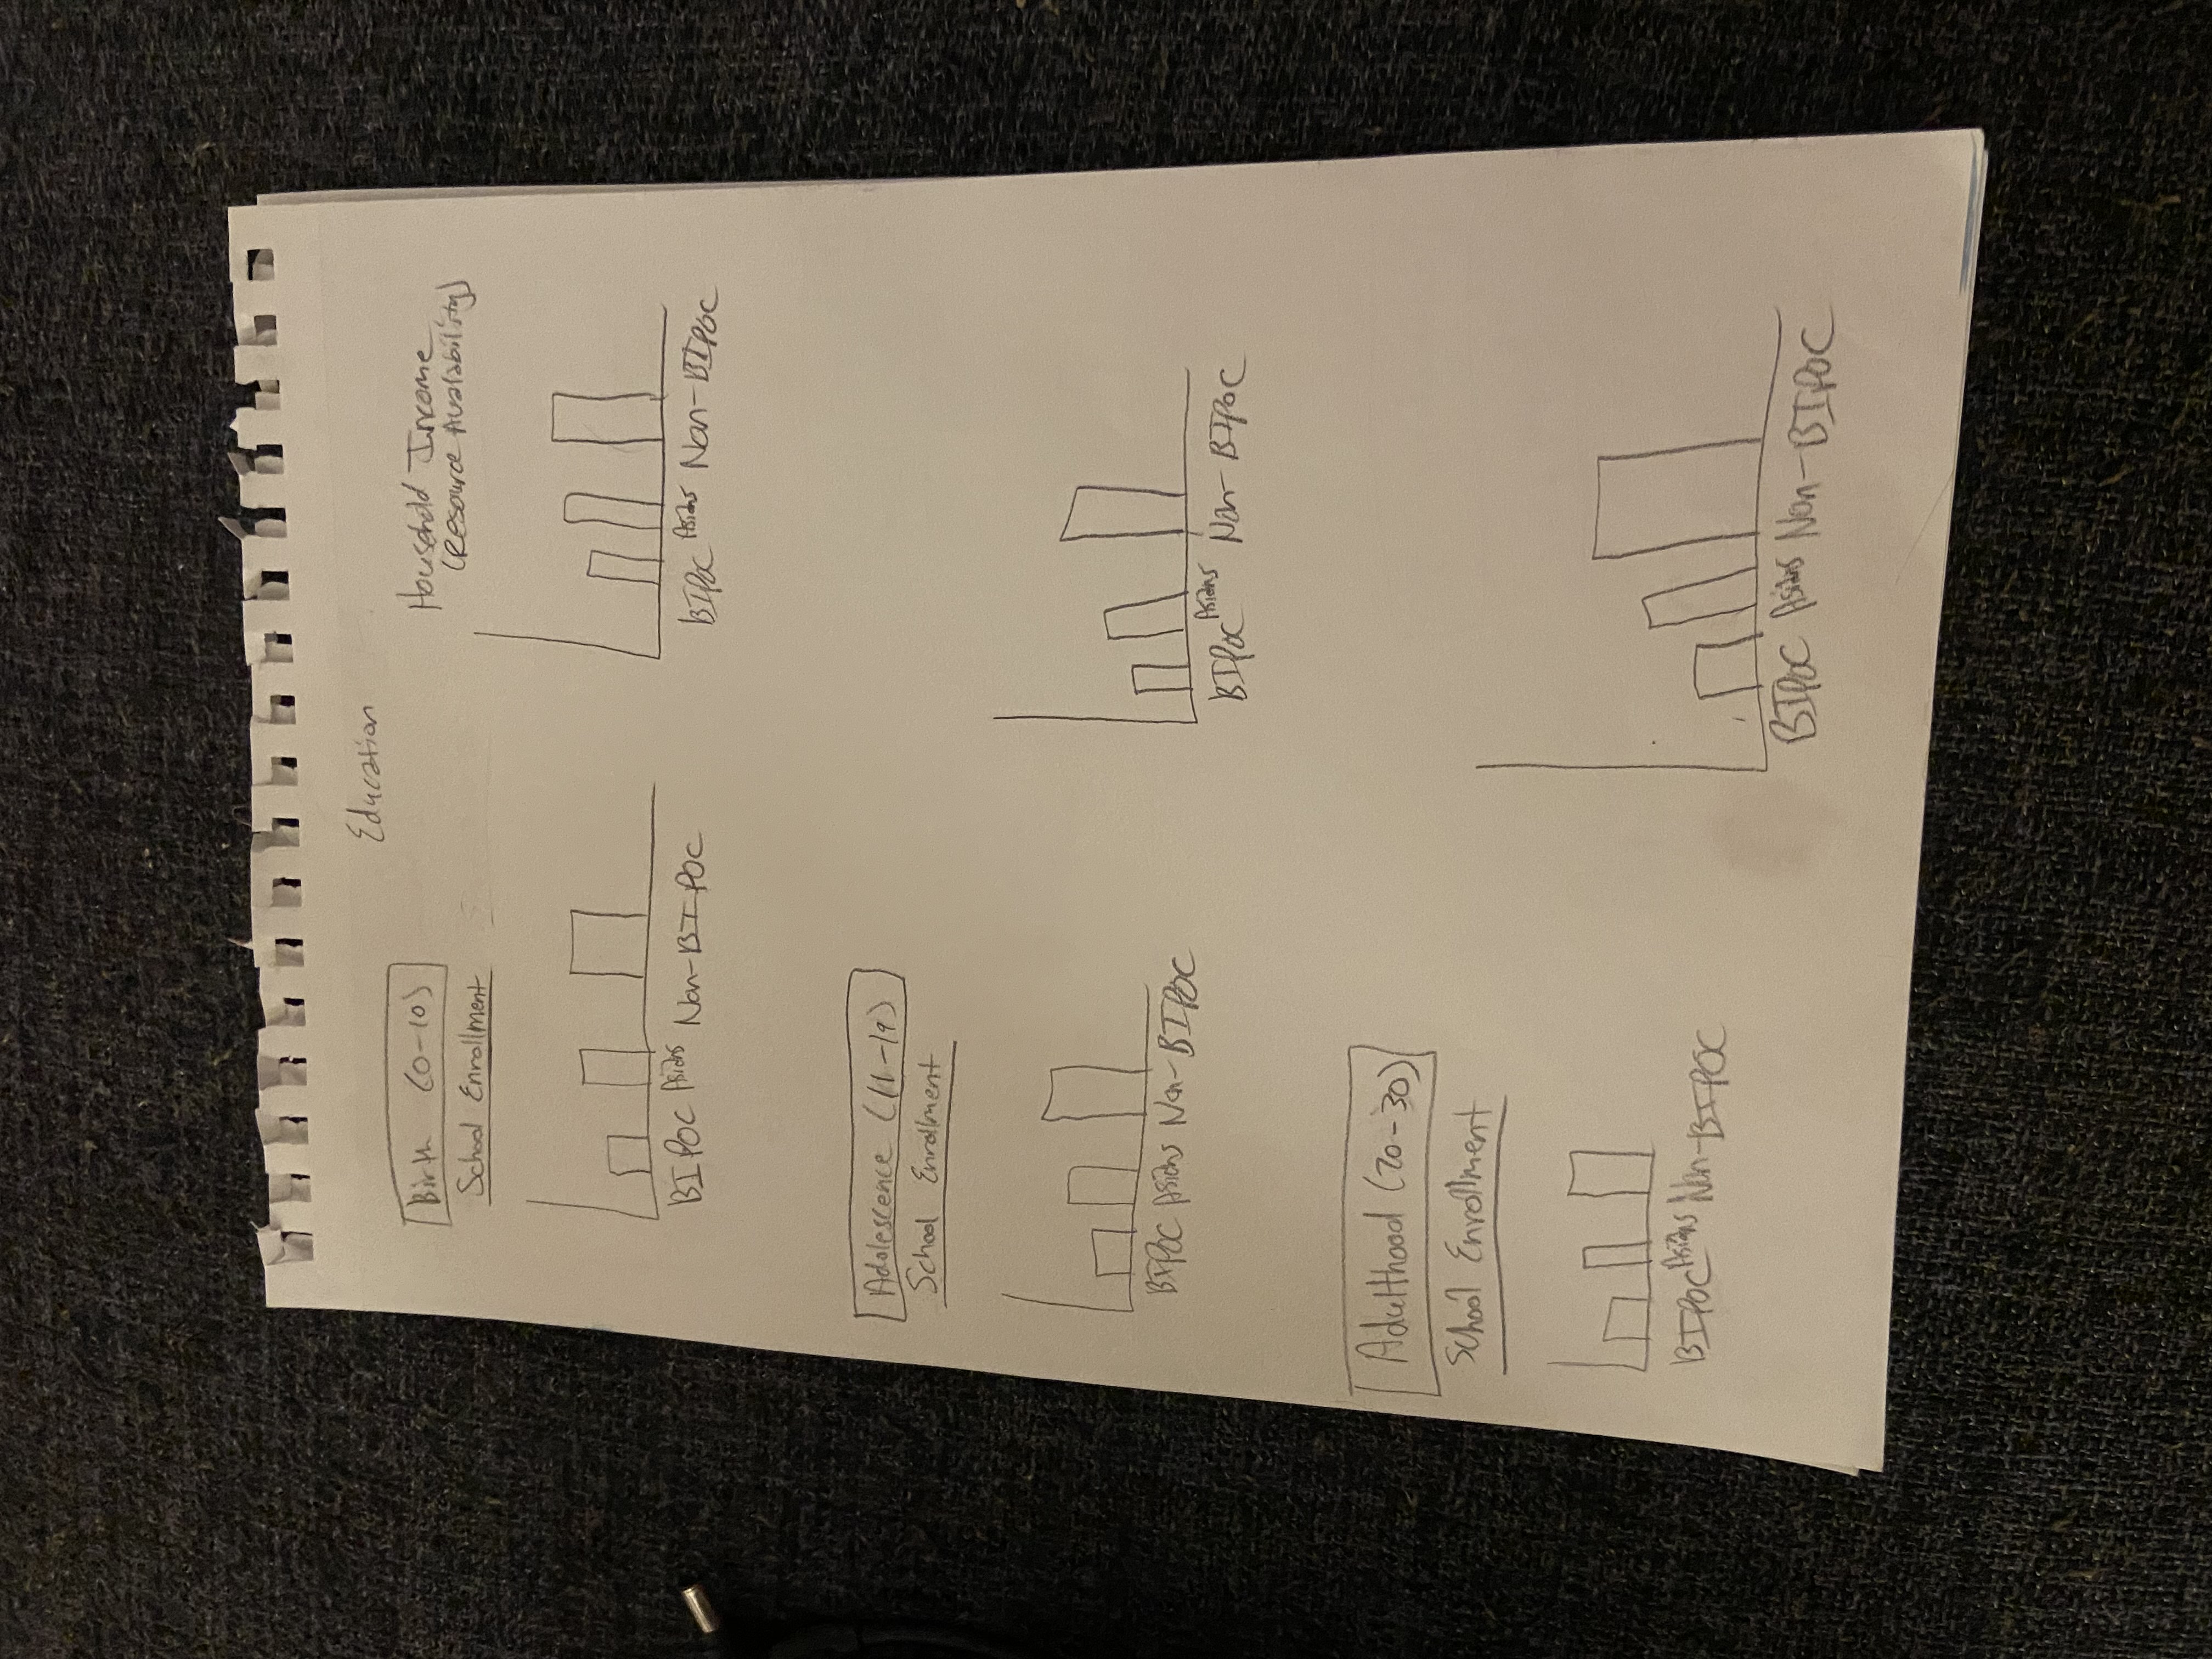 Education
Birth (0-10)
School Enrollment
BIPOC Asians Non-BIPOC
Household Income
(Resource Availability)
BIPOC Asians Non-BIPOC
Adolescence (11-19)
School Enrollment
BIPOC Asians Non-BIPOC
BIPOC Asians Non-BIPOC
Adulthood (20-30)
School Enrollment
BIPOC Asians Non-BIPOC
BIPOC Asians Non-BIPOC